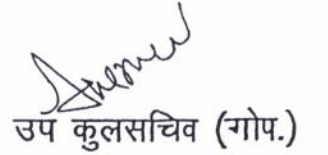 उप कुलसचिव (गोप.)